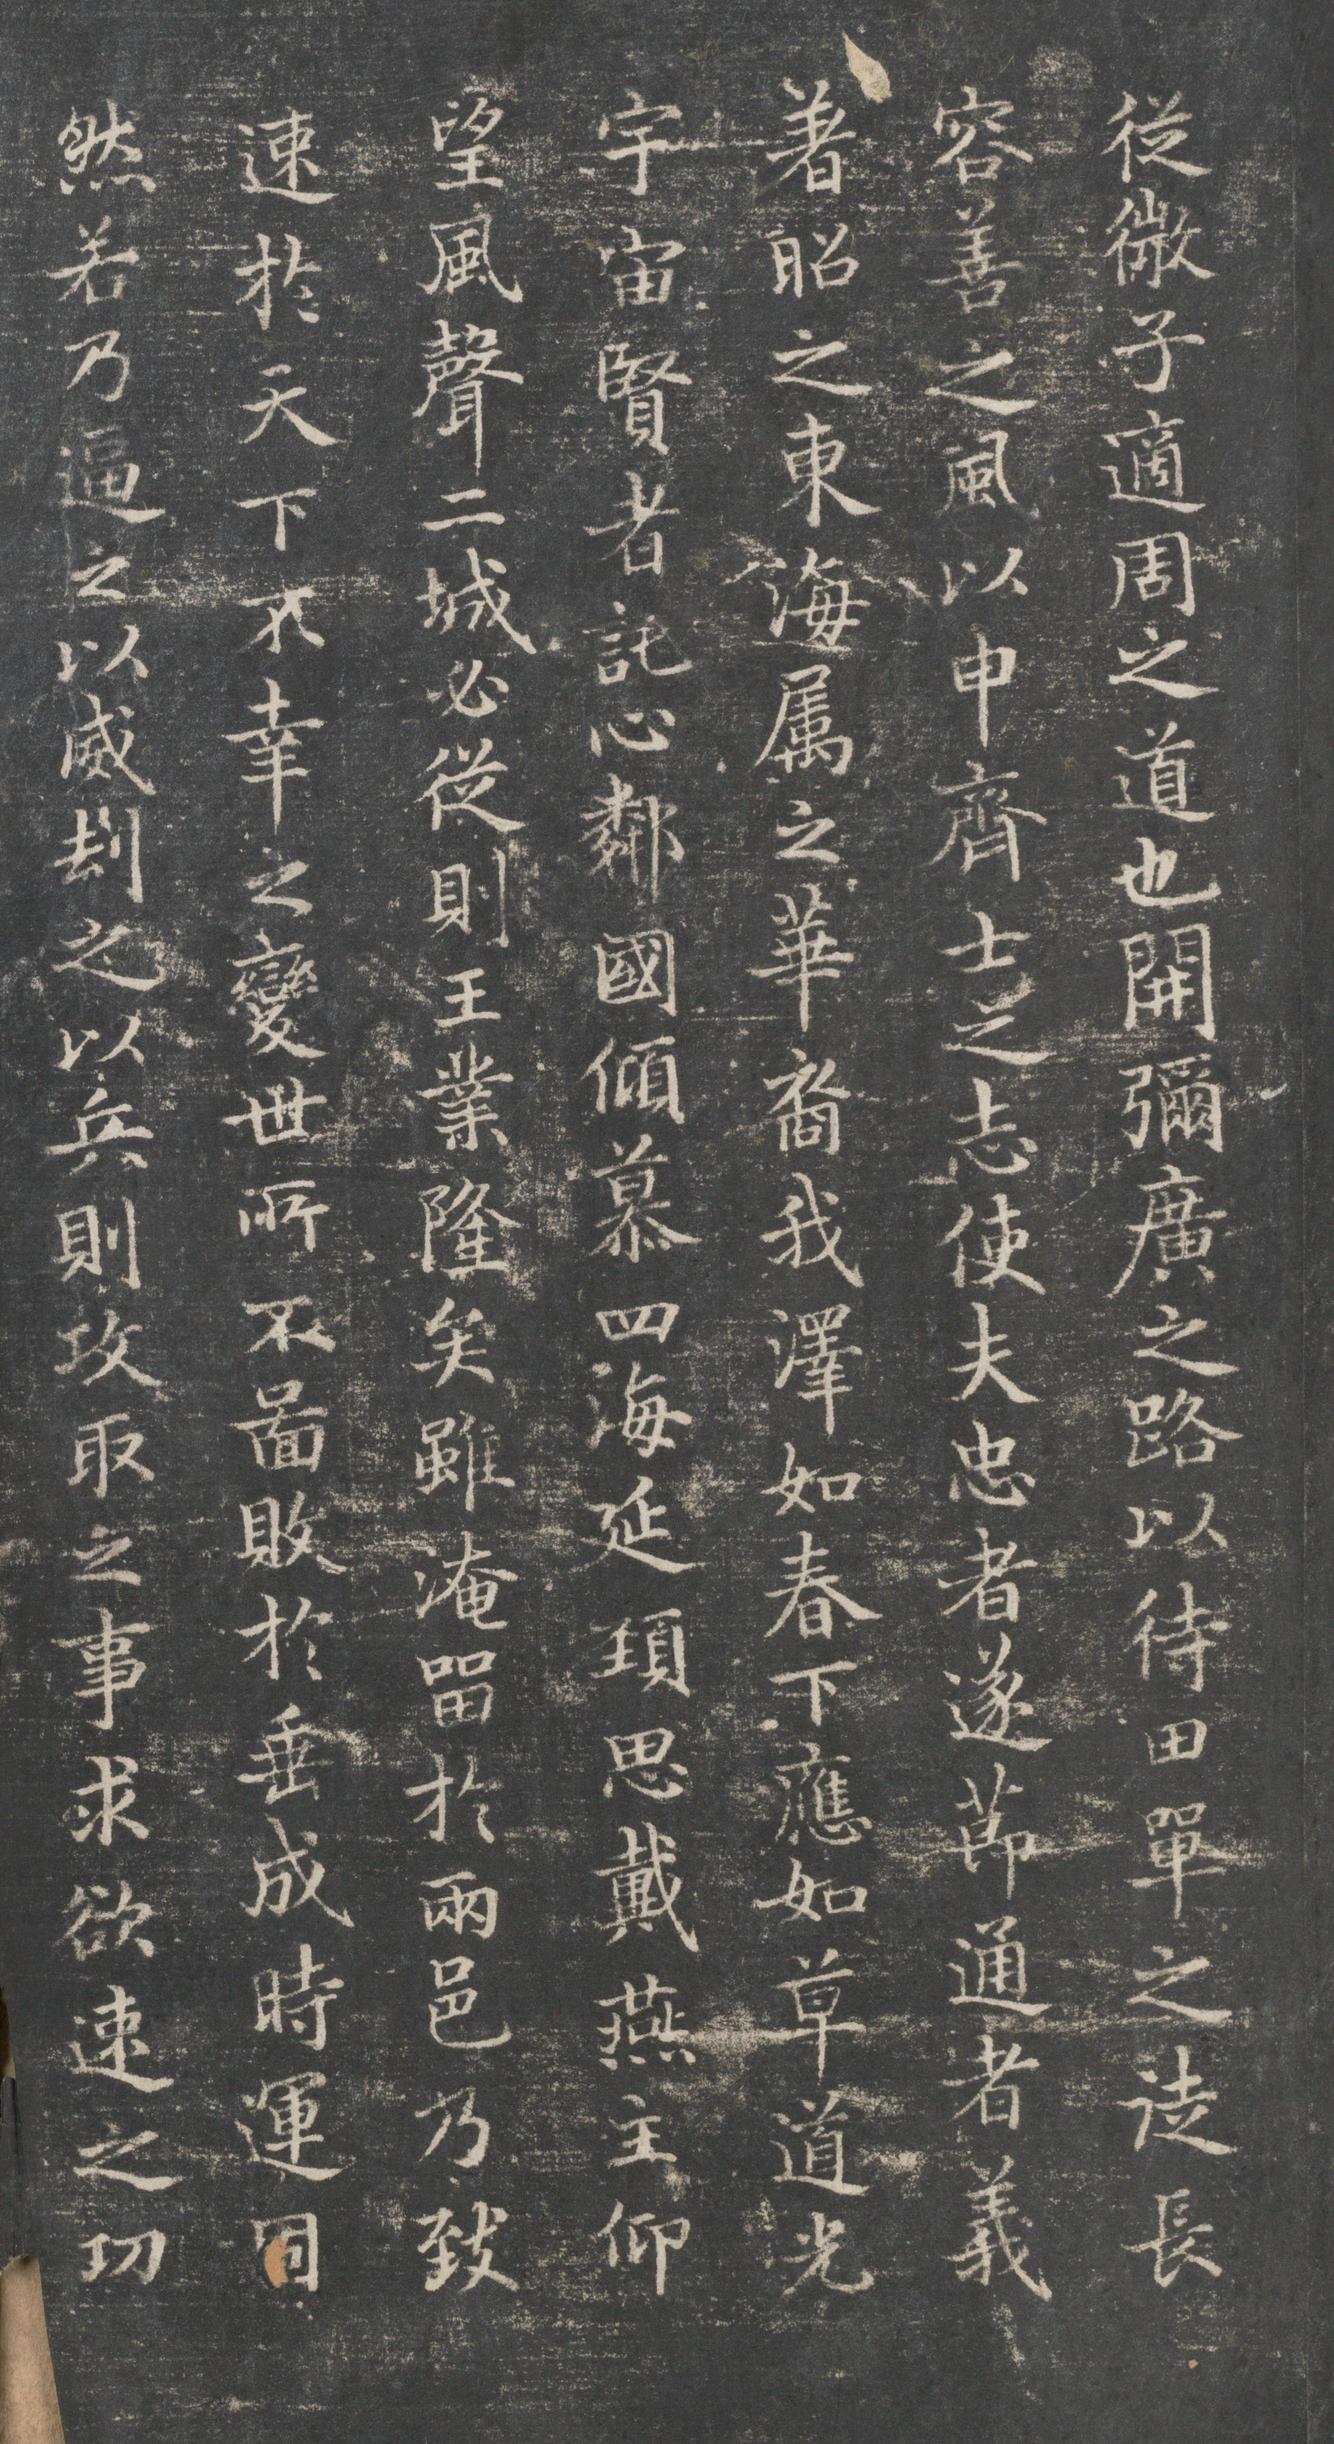 從微子適周之道也開彌廣之路以待田單之徒長
容善之風以申齊士之志使夫忠者遂節通者義
著昭之東海属之華裔我澤如春下應如草道光
宇宙賢者託心鄰國傾慕四海延頸思戴燕主仰
望風聲二城必從則王業隆矣雖淹留於兩邑乃致
速於天下不幸之變世所不啚敗於垂成時運固
然若乃逼之以威劫之以兵則攻取之事求欲速之功